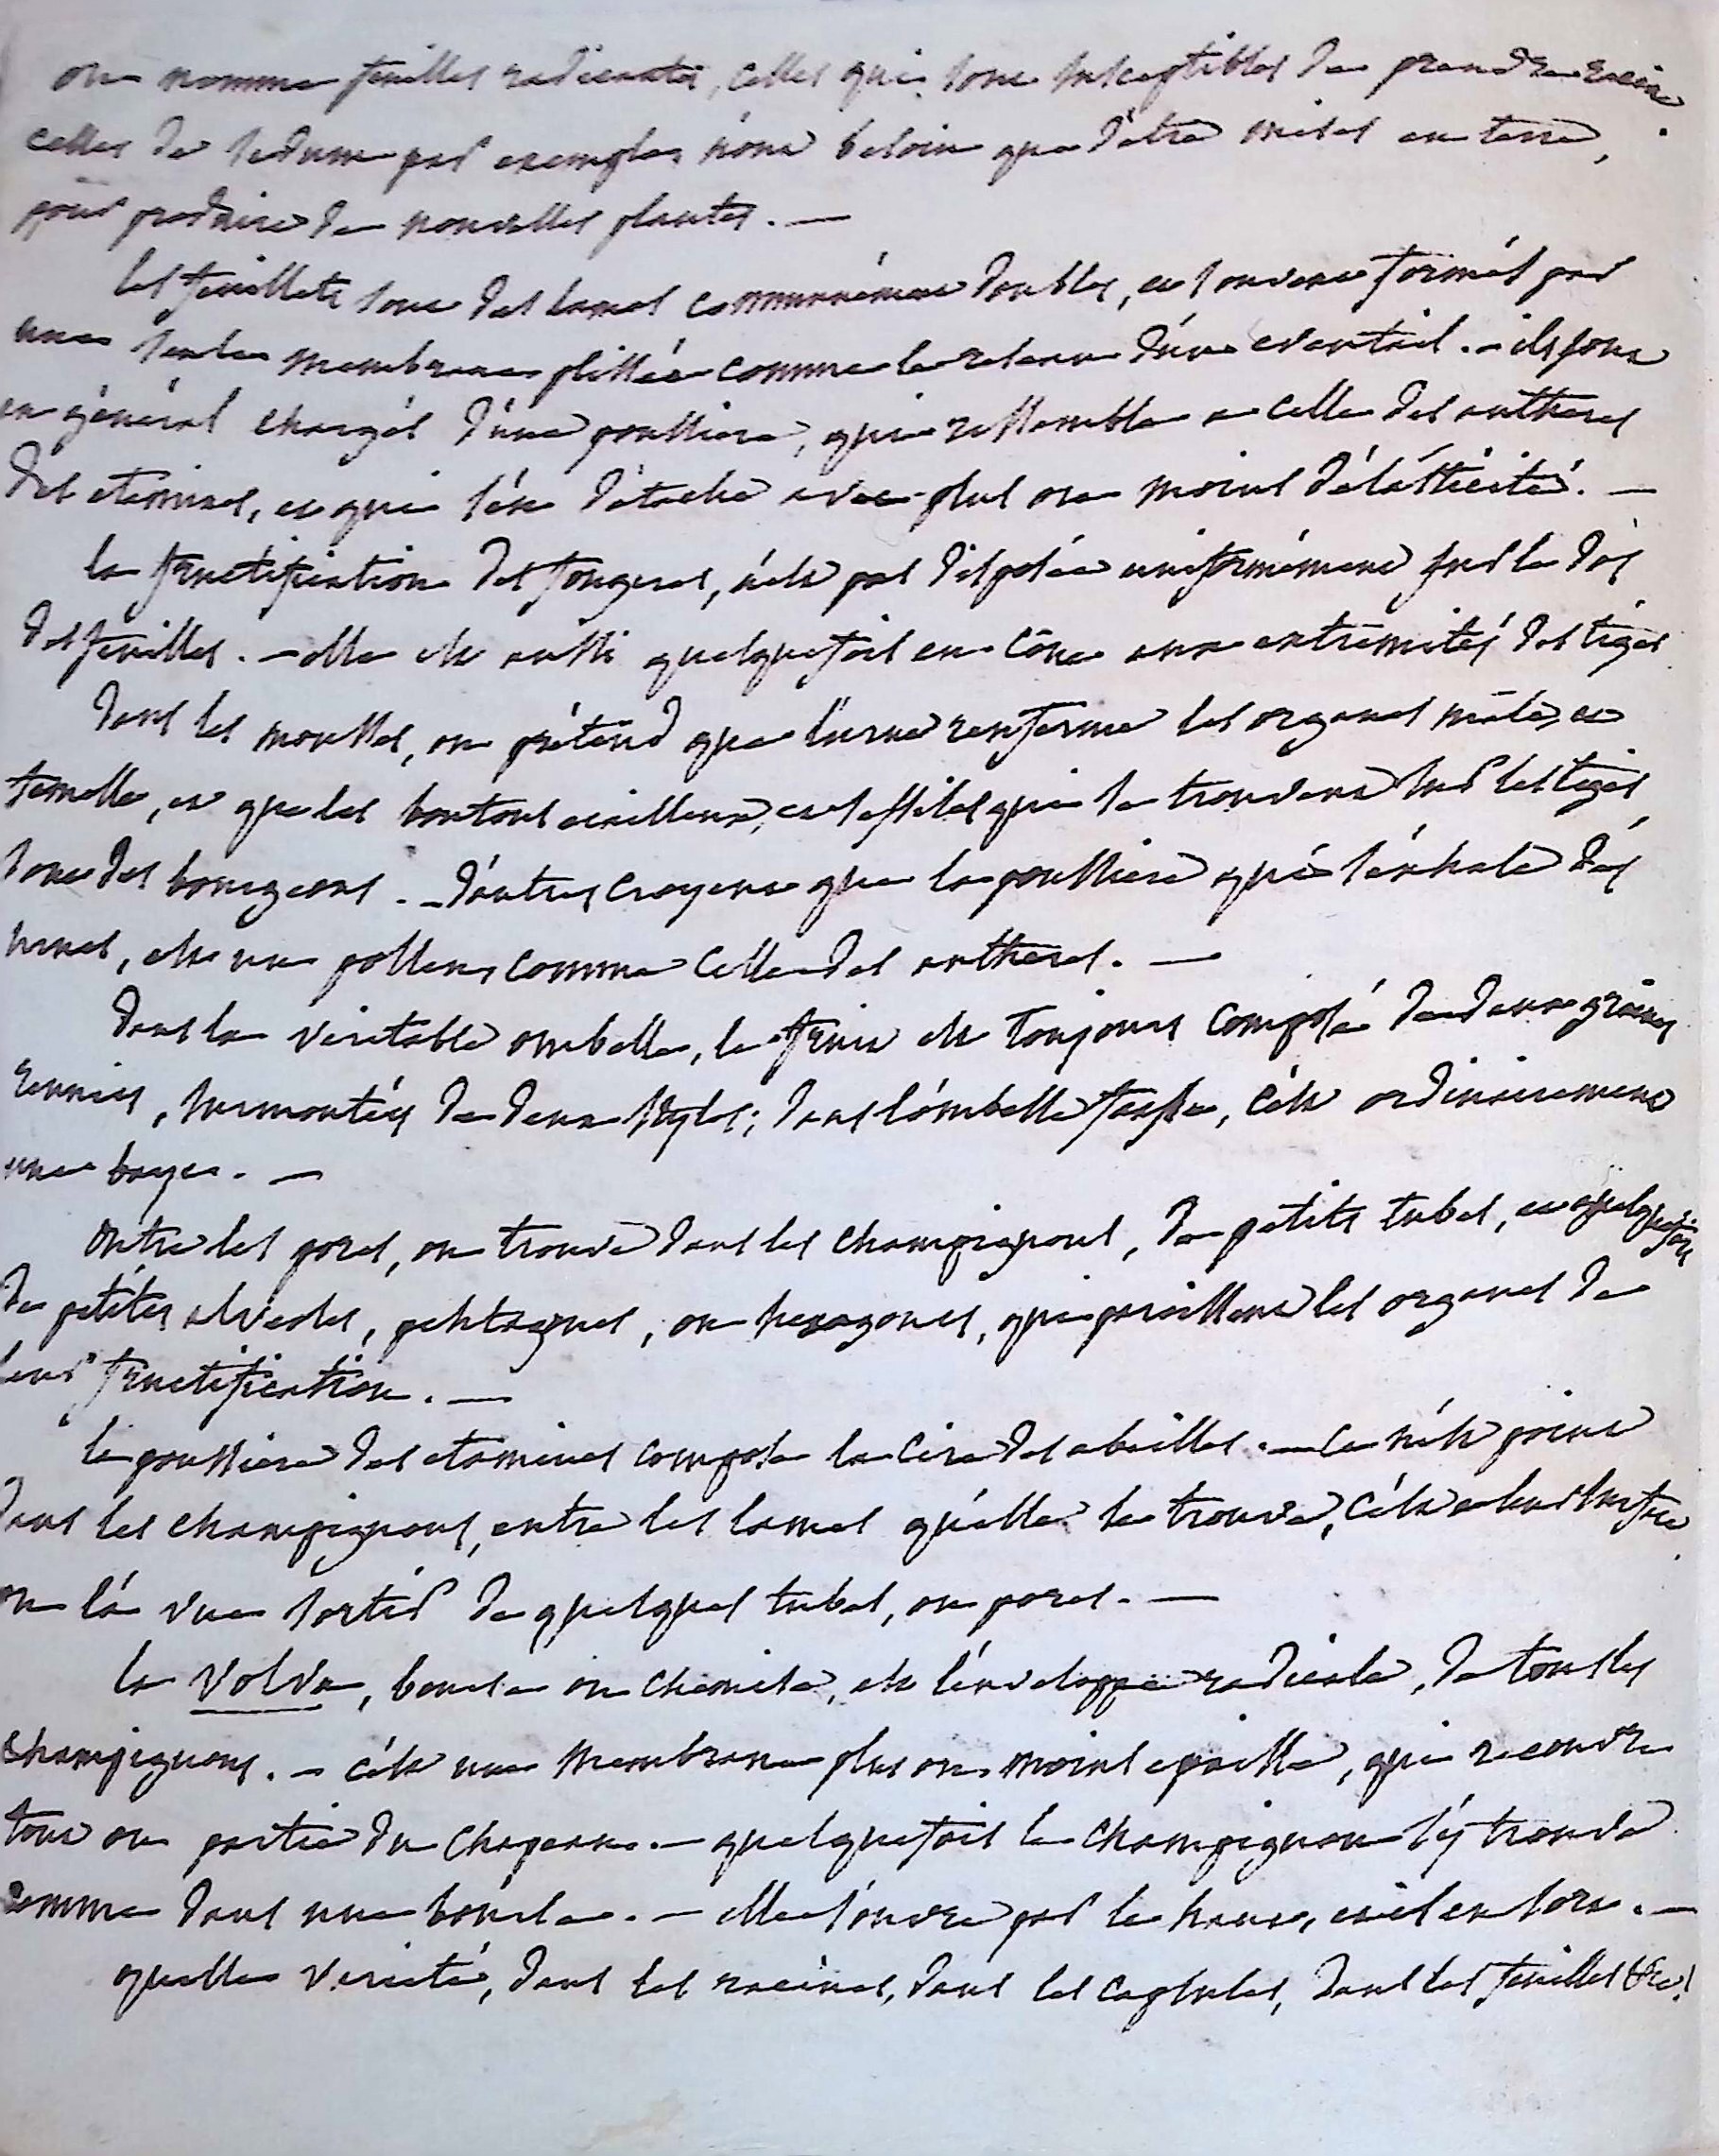 on nomme feuilles radicantes, celles qui sont susceptibles de prendre racine.
celles du sedum par exemple, n'ont besoin que d'être mises en terre,
pour produire de nouvelles plantes. —
les feuillets sont des lames communément doubles, et souvent formés par
une seule membrane plissée comme le esventail. — ils sont
en général chargés d'une poussiere, qui ressemble a celle des antheres
des etamines, et qui s'en détache avec plus ou moins d'élasticité. —
la fructification des fougeres, n'est pas disposée uniformément sur le dos
des feuilles. — elle est aussi quelquefois en cône aux extrémités des tiges
dans les mousses, on prétend que l'urne renferme les organes mâle, et
femelle, et que les boutons ecailleux, et sessiles qui se trouvent sur les tiges,
sont des bourgeons. — d'autres croyent que la poussiere qui s'exhale des
urnes, est un pollen, comme celle des antheres. —
dans la veritable ombelle, le fruit est toujours composé de deux graines
reunies, surmontées de deux styles; dans l'ombelle fausse, c'est ordinairement
une baye. —
outre les pores, on trouve dans les champignons, de petits tubes, et quelquefois
de petites alveoles, pentagones, ou hexagones, qui paraissent les organes de
leur fructification. —
la poussiere des etamines compose la cire des abeilles. — ce n'est point
dans les champignons, entre les lames qu'elle se trouve, c'est a leur surface.
on l'a vue sortir de quelques tubes, ou pores. —
la volva, bourse ou chemise, est l'enveloppe radicale, de tous les
champignons. — c'est une membrane plus ou moins epaisse, qui recouvre
tout ou partie du chapeau. — quelquefois le champignon s'y trouve
comme dans une bourse. — elle s'ouvre par le haut, et il en sort. —
quelle varieté, dans les racines, dans les capsules, dans les feuilles &c!